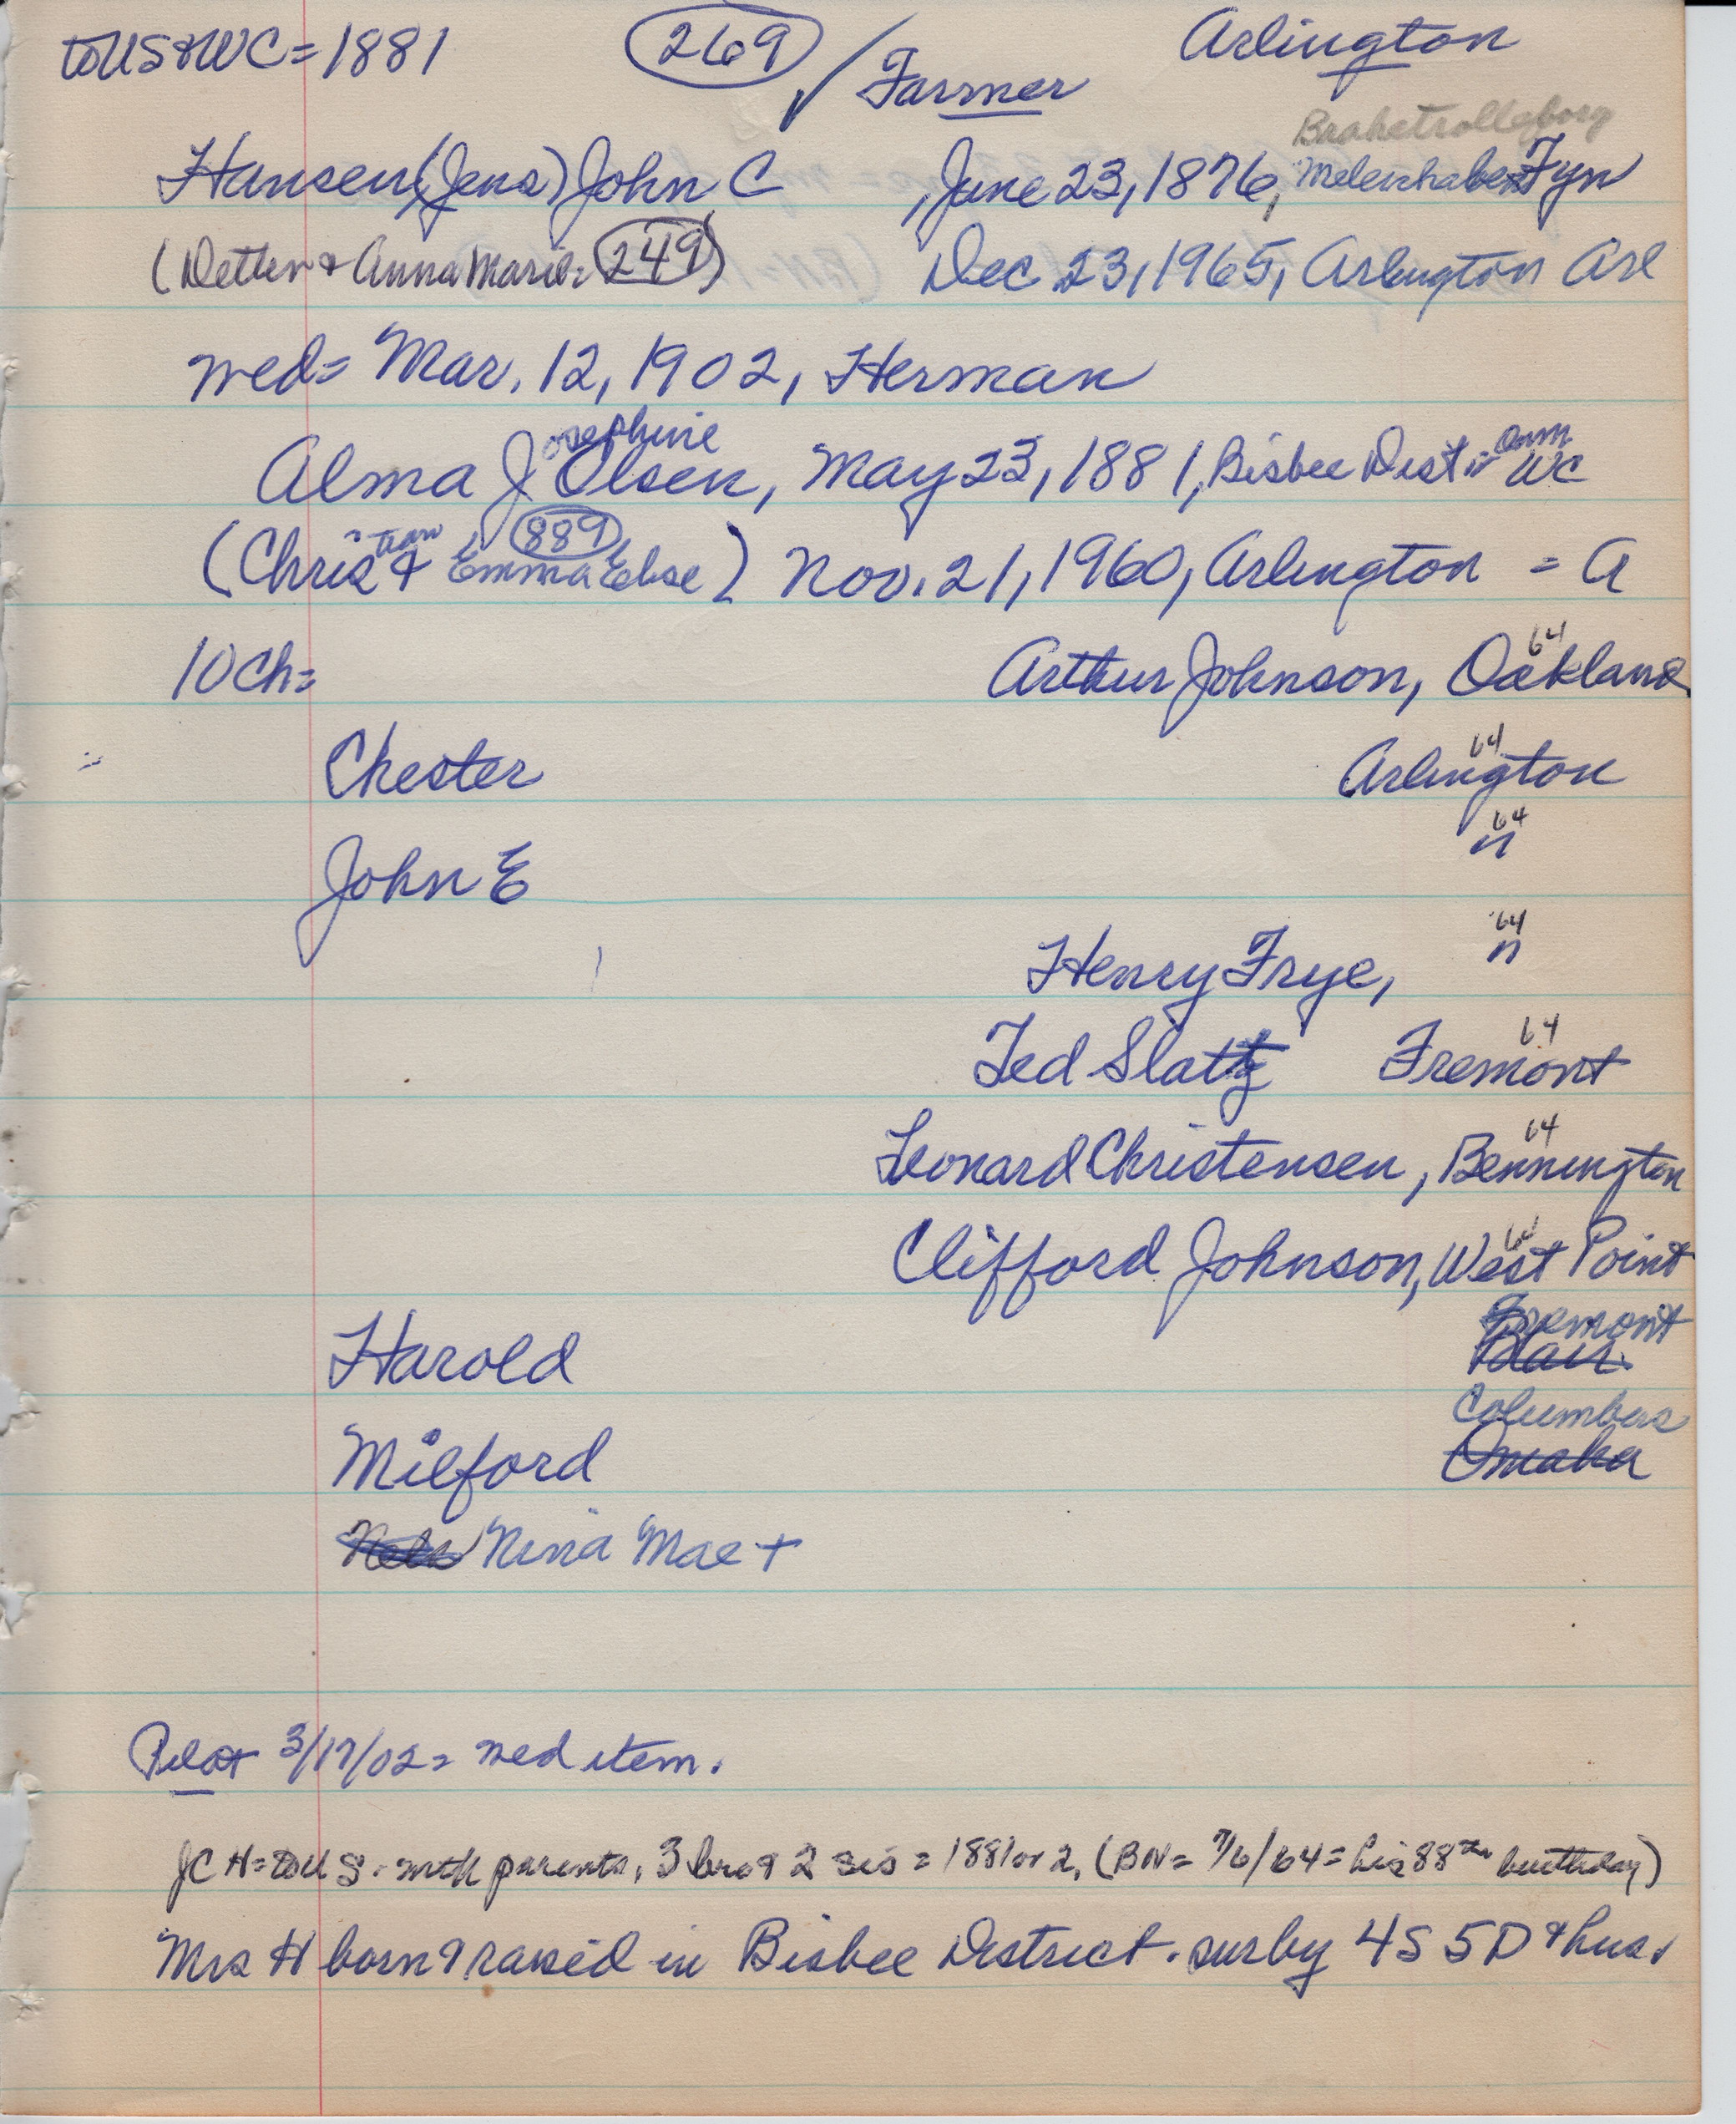 to US & WC = 1881 269 ✓ Farmer Arlington
Brahetrolleborg
Hansen (Jens) John C , June 23, 1876, Fyn
(Detlev & Anna Marie = 249) Dec 23, 1965, Arlington Arl
wed = Mar. 12, 1902, Herman
Alma Josephine Olsen, May 23, 1881, Bisbee Dist in WC
(Christian & Emma Else 889) Nov. 21, 1960, Arlington = A
10 Ch = Arthur Johnson, Oakland 64
Chester Arlington 64
John E " 64
Henry Frye, " '64
Ted Slatz Fremont 64
Leonard Christensen, Bennington 64
Clifford Johnson, West Point 64
Fremont
Harold Blair
Columbus
Milford Omaha
Nels Nina Mae +
Pilot 3/17/02 = wed item.
JCH = to U S. with parents, 3 bro & 2 sis = 1881 or 2, (BN = 7/6/64 = his 88th birthday)
Mrs H born & raised in Bisbee District. sur by 4S 5D & hus.